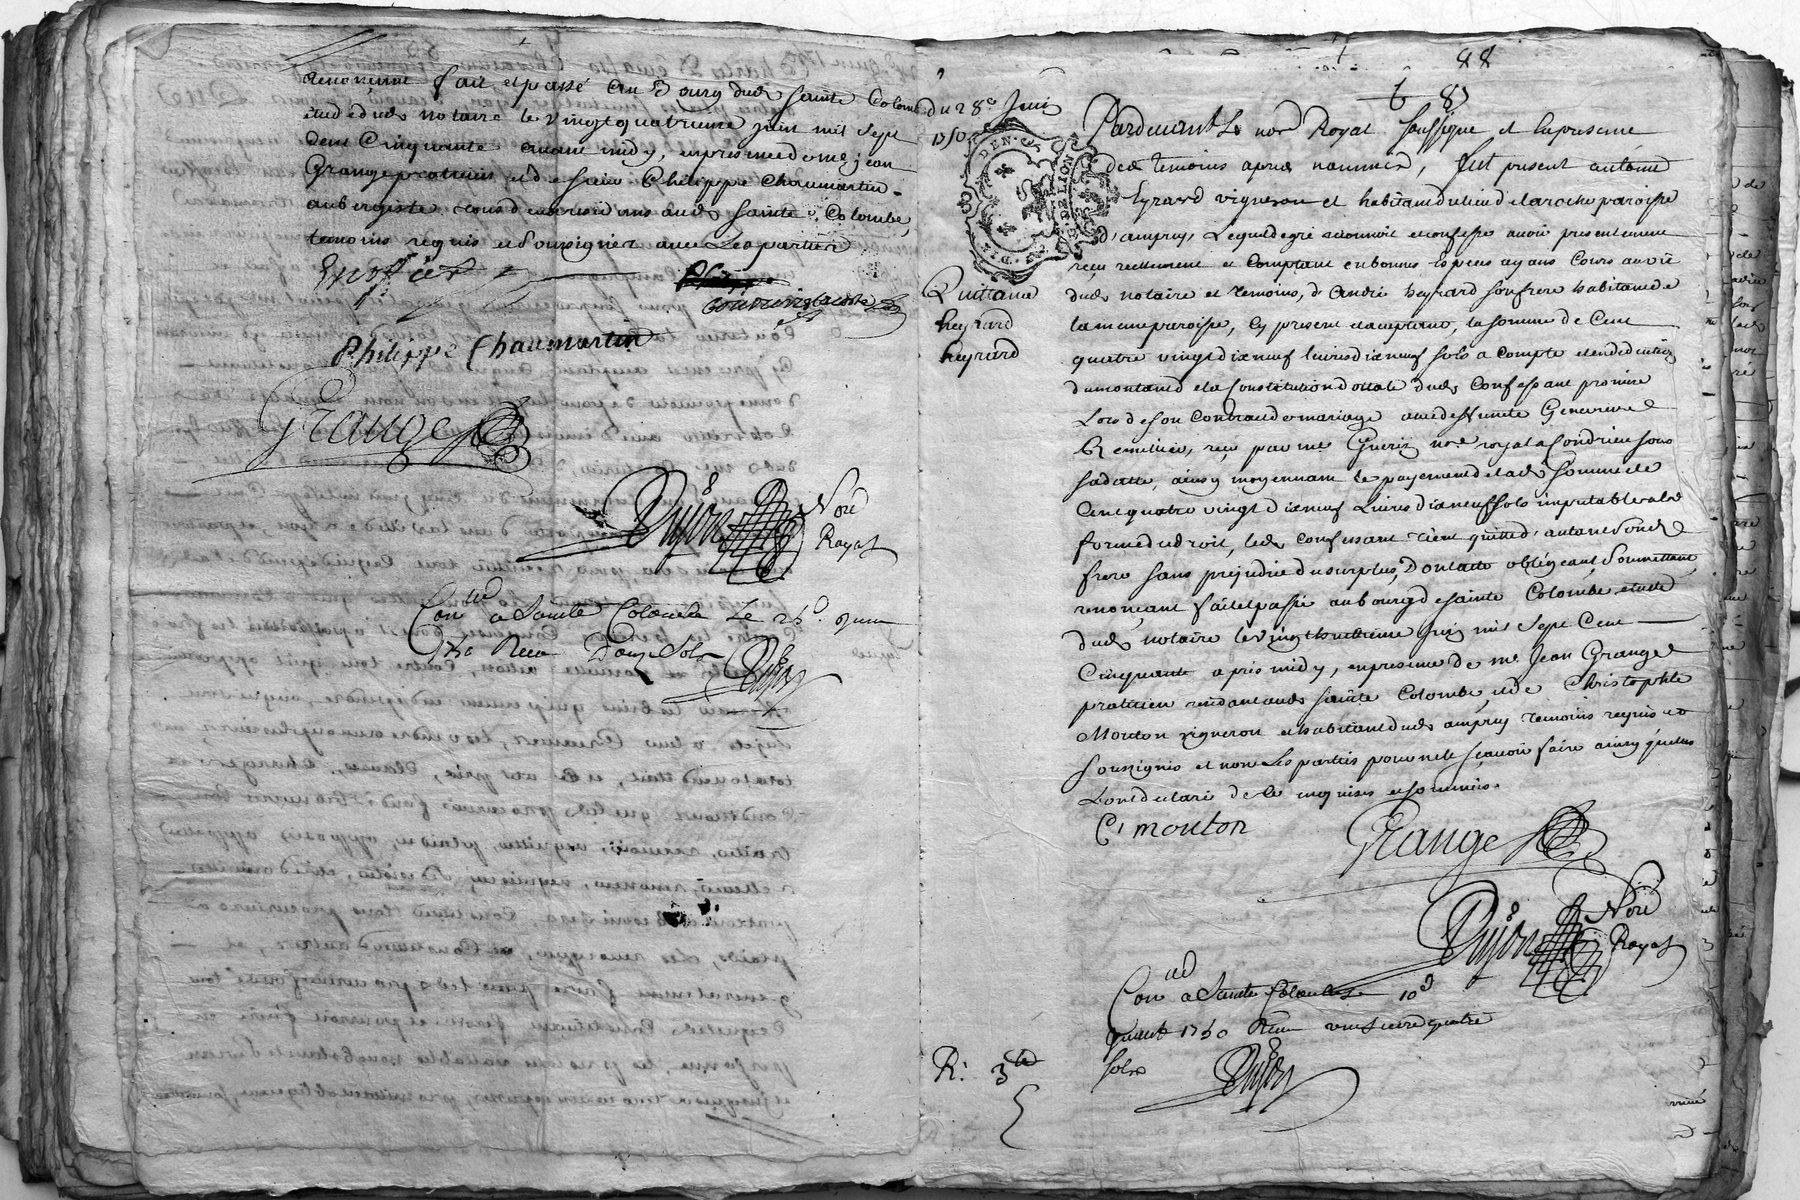 renonçant fait et passé au Bourg dud. Sainte Colombe
étude dud. notaire le vingt quatrieme juin mil sept
cent Cinquante avant midy, en presence de me. jean
Grange praticien et de sieur Philippe Chaumartin
aubergiste tous deux residents aud. Sainte Colombe,
temoins requis et soussignez avec les parties
Philippe Chaumartin
Grange
Dujon Nore
Royal
Conllé a Sainte Colombe Le 25e. juin
1750 Recu Douze Sols
Dujon
88
87
du 28e Juin
1750
DEN. DE LION
Quittance
heyrard
heyrard
Pardevant Le nore Royal soussigné et la presence
des temoins apres nommés, fut present antoine
heyrard vigneron et habitant du lieu de la roche paroisse
d'ampuy, Lequel de gré a reconnu et confessé avoir presentement
reçu reellement et comptant en bonnes Especes ayans Cours au vû
dud. notaire et temoins, d'andré heyrard son frere habitant de
la meme paroisse, cy present et acceptant, la somme de Cent
quatre vingt dix neuf livres dix neuf sols a compte et en deduction
du montant de la Constitution dottale dud. Confessant promise
Lors de son Contrat de mariage avec deffunte Genevieve
reçu par me. Guerin nore. royal a Condrieu sous
sa datte, ainsy moyennant le payement de lad. Somme de
Cent quatre vingt dix neuf Livres dix neuf sols imputable a lad.
forme de droit, led. confessant tient quitte d'autant sond.
frere sans prejudice du surplus, Dont acte obligeant, Soumettant,
renonçant fait et passé au bourg de Sainte Colombe, etude
dud. notaire le vingt huitieme juin mil Sept Cent
Cinquante apris midy, en presence de me. Jean Grange
praticien residant aud. Sainte Colombe, et de Christophle
Mouton vigneron et habitant dud. ampuy temoins requis et
soussignés et non Les parties pour ne le sçavoir faire ainsy qu'elles
L'ont declaré de ce enquises et sommées.
C, mouton
Grange
Dujon Nore
Royal
Conllé a Sainte Colombe Le 10e
juillet 1750 Reçu une Livre quatre
sols
Dujon
R. 3lt